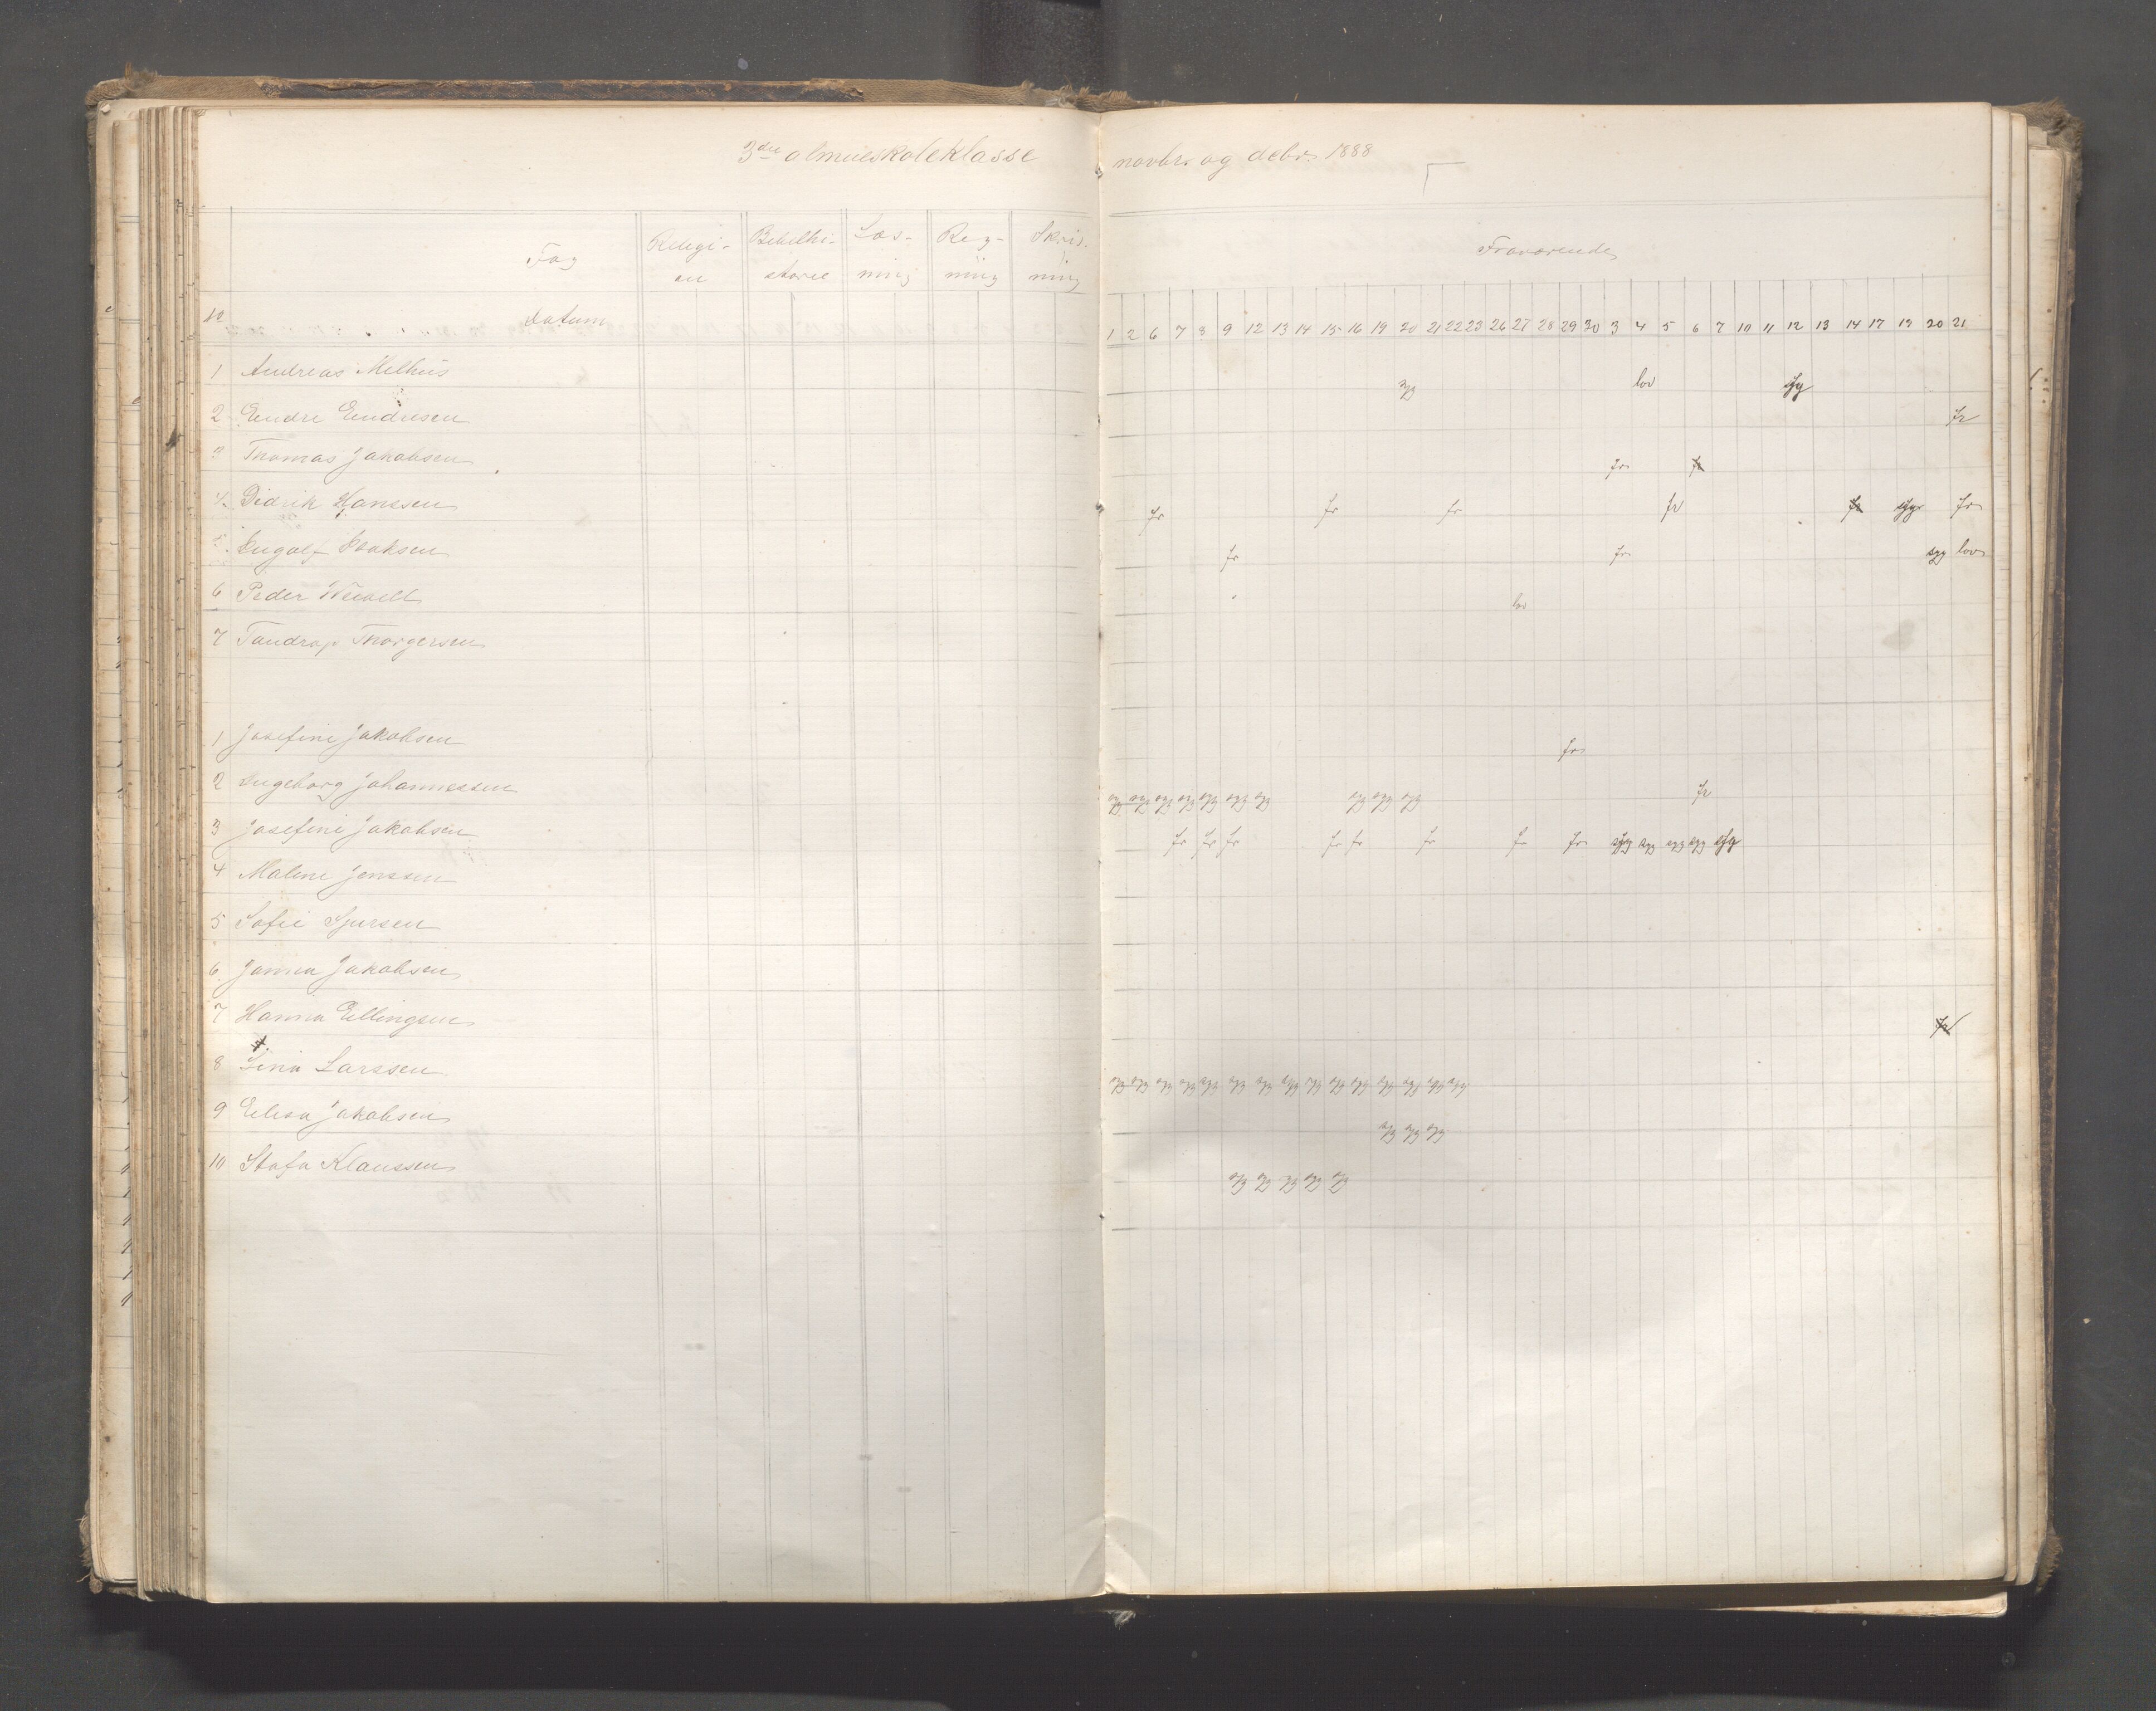 3die almueskoleklasse novbr. og debr. 1888
Fag Religi- Bibelhi- Læs- Reg- Skriv-
on storie ning ning ning
Fraværende
No Datum 1 2 6 7 8 9 12 13 14 15 16 19 20 21 22 23 26 27 28 29 30 3 4 5 6 7 10 11 12 13 14 17 19 20 21
1 Andreas Melhus syg lov syg
2 Endre Endresen fr
3 Thomas Jakobsen fr fr
4 Didrik Hanssen fr fr fr fr fr syg fr
5 Ingolf Isaksen fr fr syg lov
6 Peder lov
7 Tandrup Thorgersen
1 Josefine Jakobsen fr
2 Ingeborg Johannessen syg syg syg syg syg syg syg syg syg syg fr
3 Josefine Jakobsen fr fr fr fr fr fr fr fr syg syg syg syg syg
4 Malene Jenssen
5 Sofie Sjursen
6 Janna Jakobsen
7 Hanna Ellingsen fr
8 Lina Larssen syg syg syg syg syg syg syg syg syg syg syg syg syg syg syg
9 Elisa Jakobsen syg syg syg
10 Stafa Klaussen syg syg syg syg syg